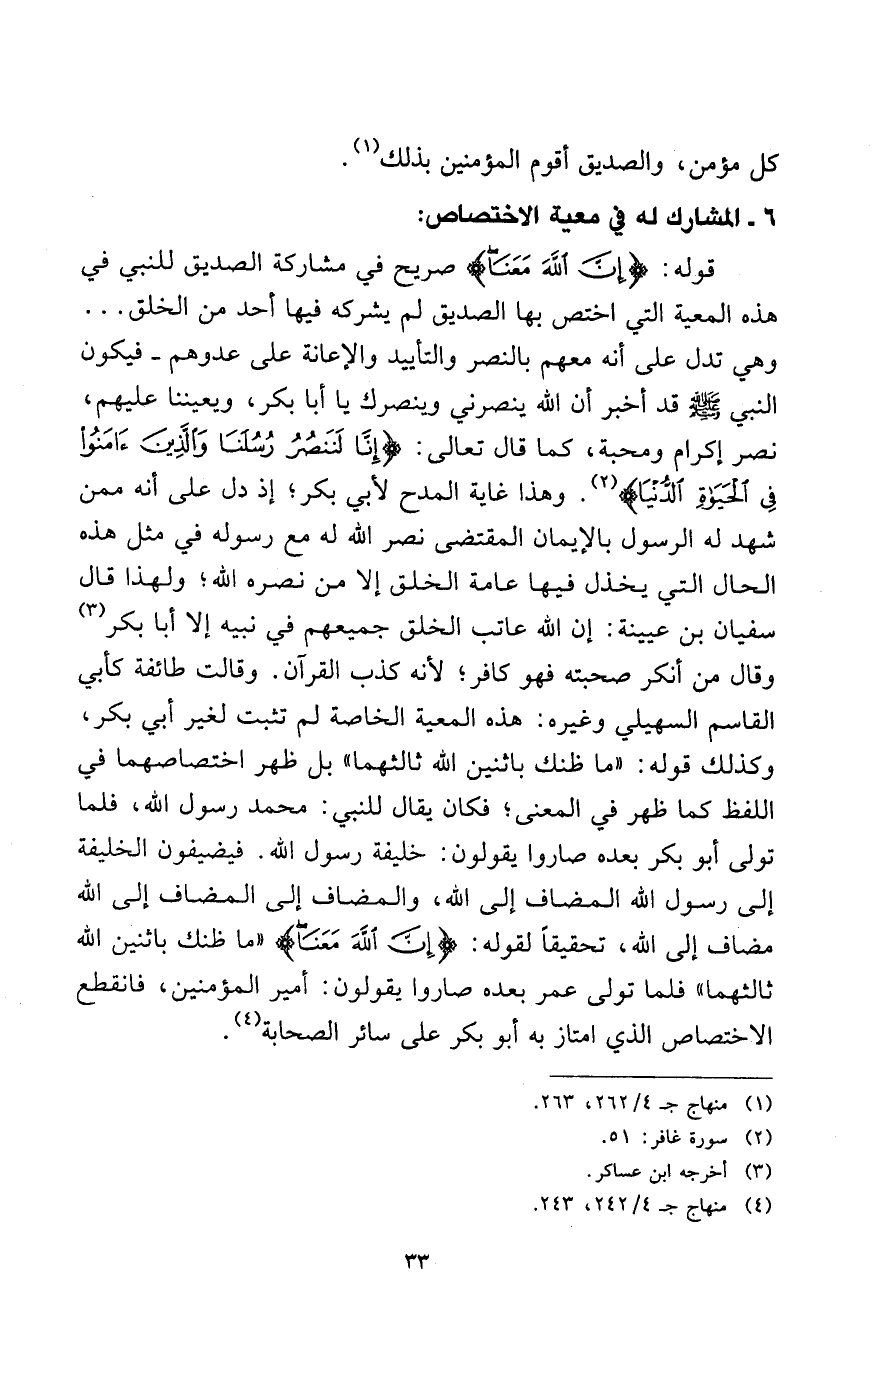 كل مؤمن، والصديق أقوم المؤمنين بذلك(١).
٦ ـ المشارك له في معية الاختصاص:
قوله: ﴿إِنَّ ٱللَّهَ مَعَنَا﴾ صريح في مشاركة الصديق للنبي في
هذه المعية التي اختص بها الصديق لم يشركه فيها أحد من الخلق...
وهي تدل على أنه معهم بالنصر والتأييد والإعانة على عدوهم ـ فيكون
النبي ﷺ قد أخبر أن الله ينصرني وينصرك يا أبا بكر، ويعيننا عليهم،
نصر إكرام ومحبة، كما قال تعالى: ﴿إِنَّا لَنَنصُرُ رُسُلَنَا وَٱلَّذِينَ ءَامَنُوا۟
فِى ٱلْحَيَوٰةِ ٱلدُّنْيَا﴾(٢). وهذا غاية المدح لأبي بكر؛ إذ دل على أنه ممن
شهد له الرسول بالإيمان المقتضى نصر الله له مع رسوله في مثل هذه
الحال التي يخذل فيها عامة الخلق إلا من نصره الله؛ ولهذا قال
سفيان بن عيينة: إن الله عاتب الخلق جميعهم في نبيه إلا أبا بكر(٣)
وقال من أنكر صحبته فهو كافر؛ لأنه كذب القرآن. وقالت طائفة كأبي
القاسم السهيلي وغيره: هذه المعية الخاصة لم تثبت لغير أبي بكر،
وكذلك قوله: «ما ظنك باثنين الله ثالثهما» بل ظهر اختصاصهما في
اللفظ كما ظهر في المعنى؛ فكان يقال للنبي: محمد رسول الله، فلما
تولى أبو بكر بعده صاروا يقولون: خليفة رسول الله. فيضيفون الخليفة
إلى رسول الله المضاف إلى الله، والمضاف إلى المضاف إلى الله
مضاف إلى الله، تحقيقاً لقوله: ﴿إِنَّ ٱللَّهَ مَعَنَا﴾ «ما ظنك باثنين الله
ثالثهما» فلما تولى عمر بعده صاروا يقولون: أمير المؤمنين، فانقطع
الاختصاص الذي امتاز به أبو بكر على سائر الصحابة(٤).
(١) منهاج جـ ٢٦٢/٤، ٢٦٣.
(٢) سورة غافر: ٥١.
(٣) أخرجه ابن عساكر.
(٤) منهاج جـ ٢٤٢/٤، ٢٤٣.
٣٣